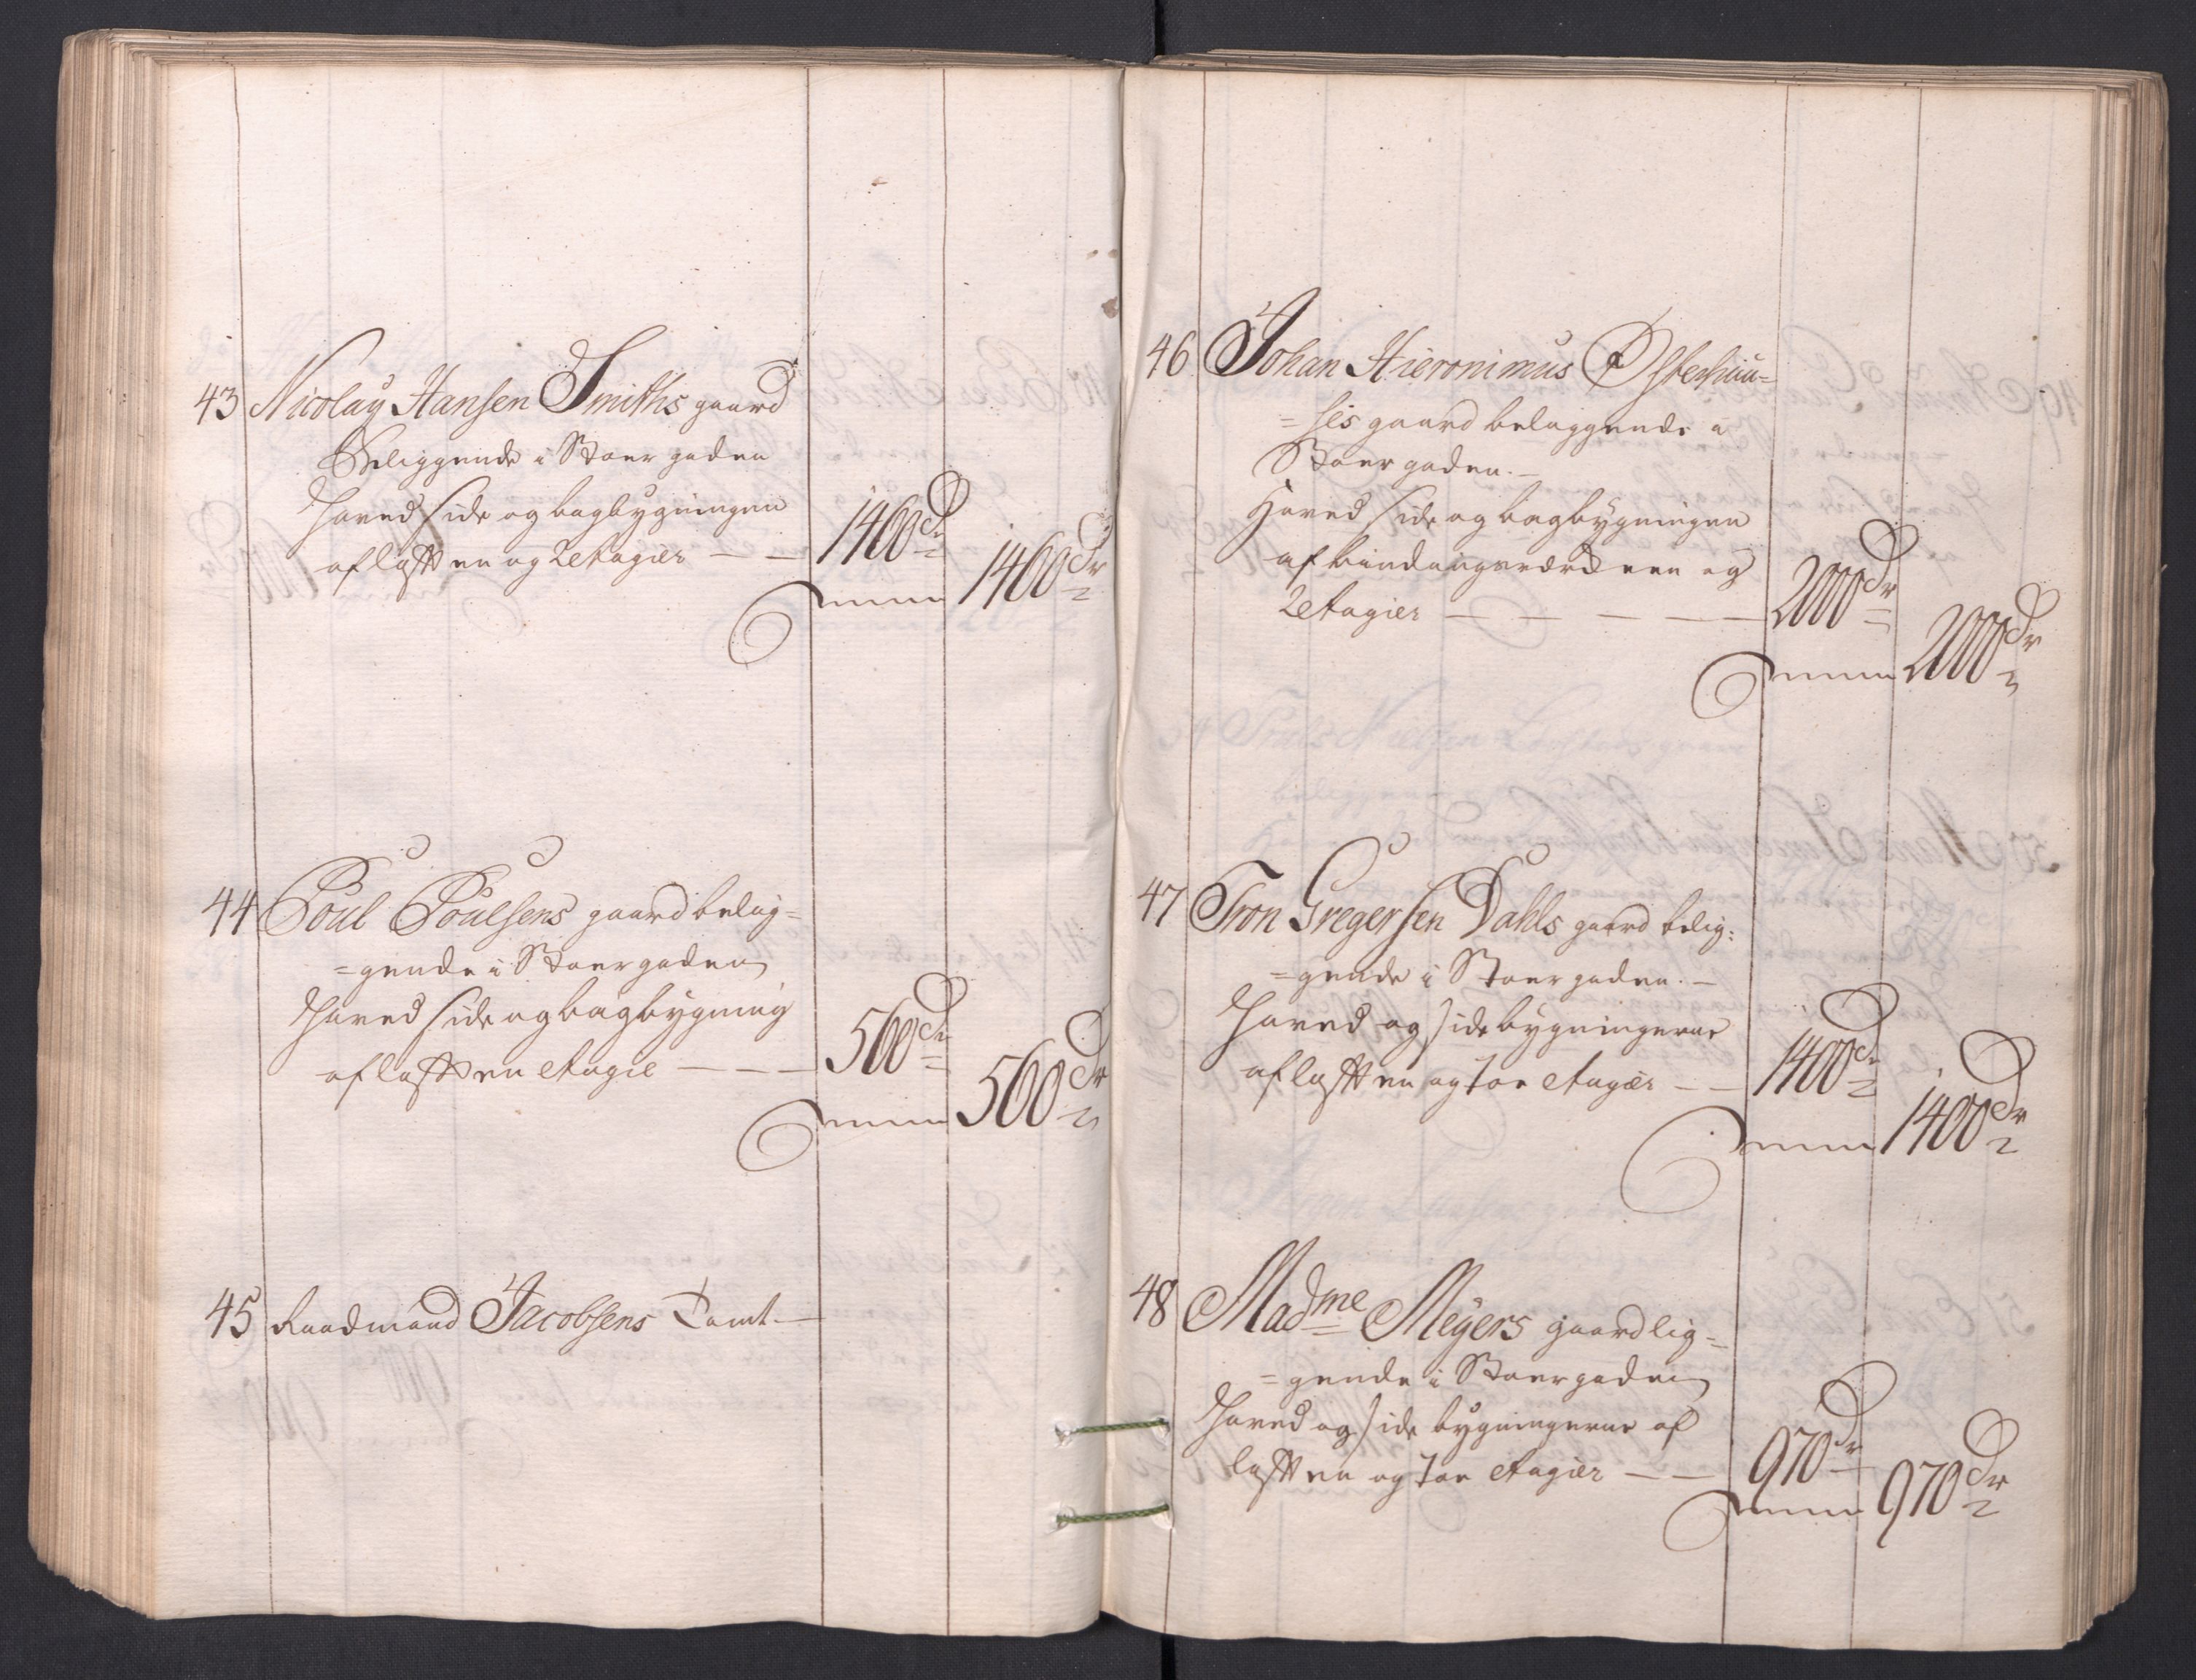 43 Nicolaÿ Hansen Smiths gaard
Beliggende i Stoergaden
Hoved side og bagbygningen
af lafft en og 2 etagier — — 1460 dr
Summa 1460 dr
44 Poul Poulsens gaard belig=
=gende i Stoergaden
Hoved side og bagbygning
af lafft en etagie — — — 560 dr
Summa 560 dr
45 Raadmand Jacobsens Tomt —
46 Johan Hieronimus Østerhuu=
=ses gaard beliggende i
Stoergaden. —
Hoved side og bagbygningen
af bindingsverck een og
2 etagier — — — — — 2000 dr
Summa 2000 dr
47 Tron Gregersen Dahls gaard belig:
=gende i Stoergaden. —
Hoved og side bygningerne
af lafft en og toe etagier — — 1400 dr
Summa 1400 dr
48 Madme Meÿers gaard lig=
=gende i Stoergaden
Hoved og side bygningerne af
lafft en og toe etagier — — 970 dr
Summa 970 dr